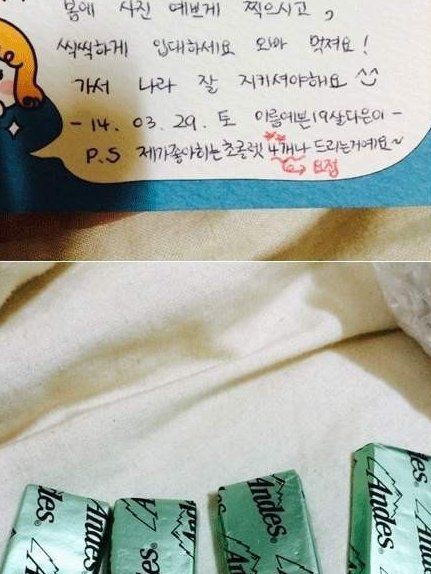 봄에 사진 예쁘게 찍으시고,
씩씩하게 입대하세요 오빠 멋져요!
가서 나라 잘 지키셔야해요
- 14. 03. 29. 토 이름예쁜19살다은이 -
P.S 제가좋아하는초콜렛 4개나 드리는거예요~
요점
Andes
Andes
Andes
Andes
Andes
es
An
es